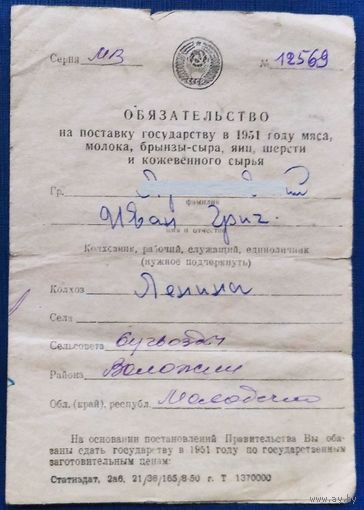 Серия МВ № 12569
ОБЯЗАТЕЛЬСТВО
на поставку государству в 1951 году мяса,
молока, брынзы-сыра, яиц, шерсти
и кожевенного сырья
Гр.
фамилия
Иван Григ.
имя и отчество
Колхозник, рабочий, служащий, единоличник
(нужное подчеркнуть)
Колхоз Ленина
Села
Сельсовета
Района Воложин
Обл. (край), республ. Молодечно
На основании постановлений Правительства Вы обя-
заны сдать государству в 1951 году по государственным
заготовительным ценам:
Статиздат, 2аб, 21/36/165/8-50 г. Т 1370000
av.by